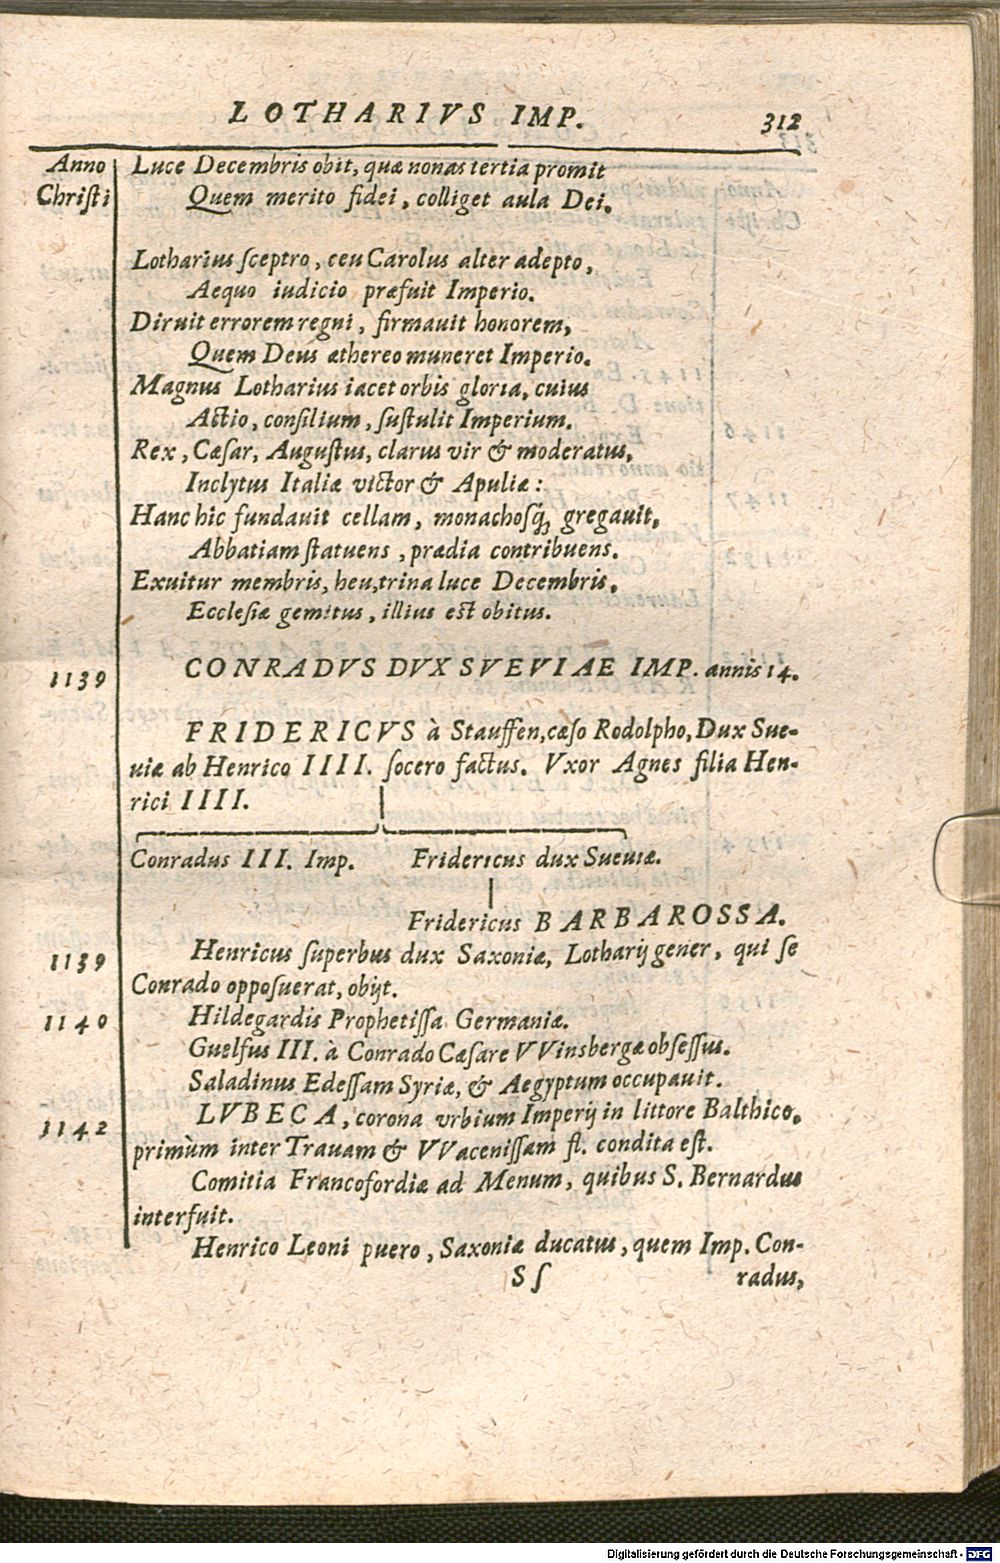 LOTHARIVS IMP. 312
Anno Luce Decembris obit, quæ nonas tertia promit
Chriſti Quem merito fidei, colliget aula Dei.
Lotharius ſceptro, ceu Carolus alter adepto,
Aequo iudicio præfuit Imperio.
Diruit errorem regni, firmauit honorem,
Quem Deus æthereo muneret Imperio.
Magnus Lotharius iacet orbis gloria, cuius
Actio, conſilium, ſuſtulit Imperium.
Rex, Cæſar, Auguſtus, clarus vir & moderatus,
Inclytus Italiæ victor & Apuliæ:
Hanc hic fundauit cellam, monachosq́, gregauit,
Abbatiam ſtatuens, prædia contribuens.
Exuitur membris, heu, trina luce Decembris,
Eccleſiæ gemitus, illius est obitus.
1139 CONRADVS DVX SVEVIAE IMP. annis 14.
FRIDERICVS à Stauffen, cæſo Rodolpho, Dux Sue-
uiæ ab Henrico IIII. ſocero factus. Vxor Agnes filia Hen-
rici IIII.
Conradus III. Imp. Fridericus dux Sueuiæ.
Fridericus BARBAROSSA.
1139 Henricus ſuperbus dux Saxoniæ, Lotharij gener, qui ſe
Conrado oppoſuerat, obijt.
1140 Hildegardis Prophetiſſa Germaniæ.
Guelfus III. à Conrado Cæſare VVinsbergæ obſeſſus.
Saladinus Edeſſam Syriæ, & Aegyptum occupauit.
1142 LVBECA, corona vrbium Imperij in littore Balthico,
primùm inter Trauam & VVaceniſſam fl. condita eſt.
Comitia Francofordiæ ad Menum, quibus S. Bernardus
interfuit.
Henrico Leoni puero, Saxoniæ ducatus, quem Imp. Con-
Sſ radus,
Digitalisierung gefördert durch die Deutsche Forschungsgemeinschaft - DFG